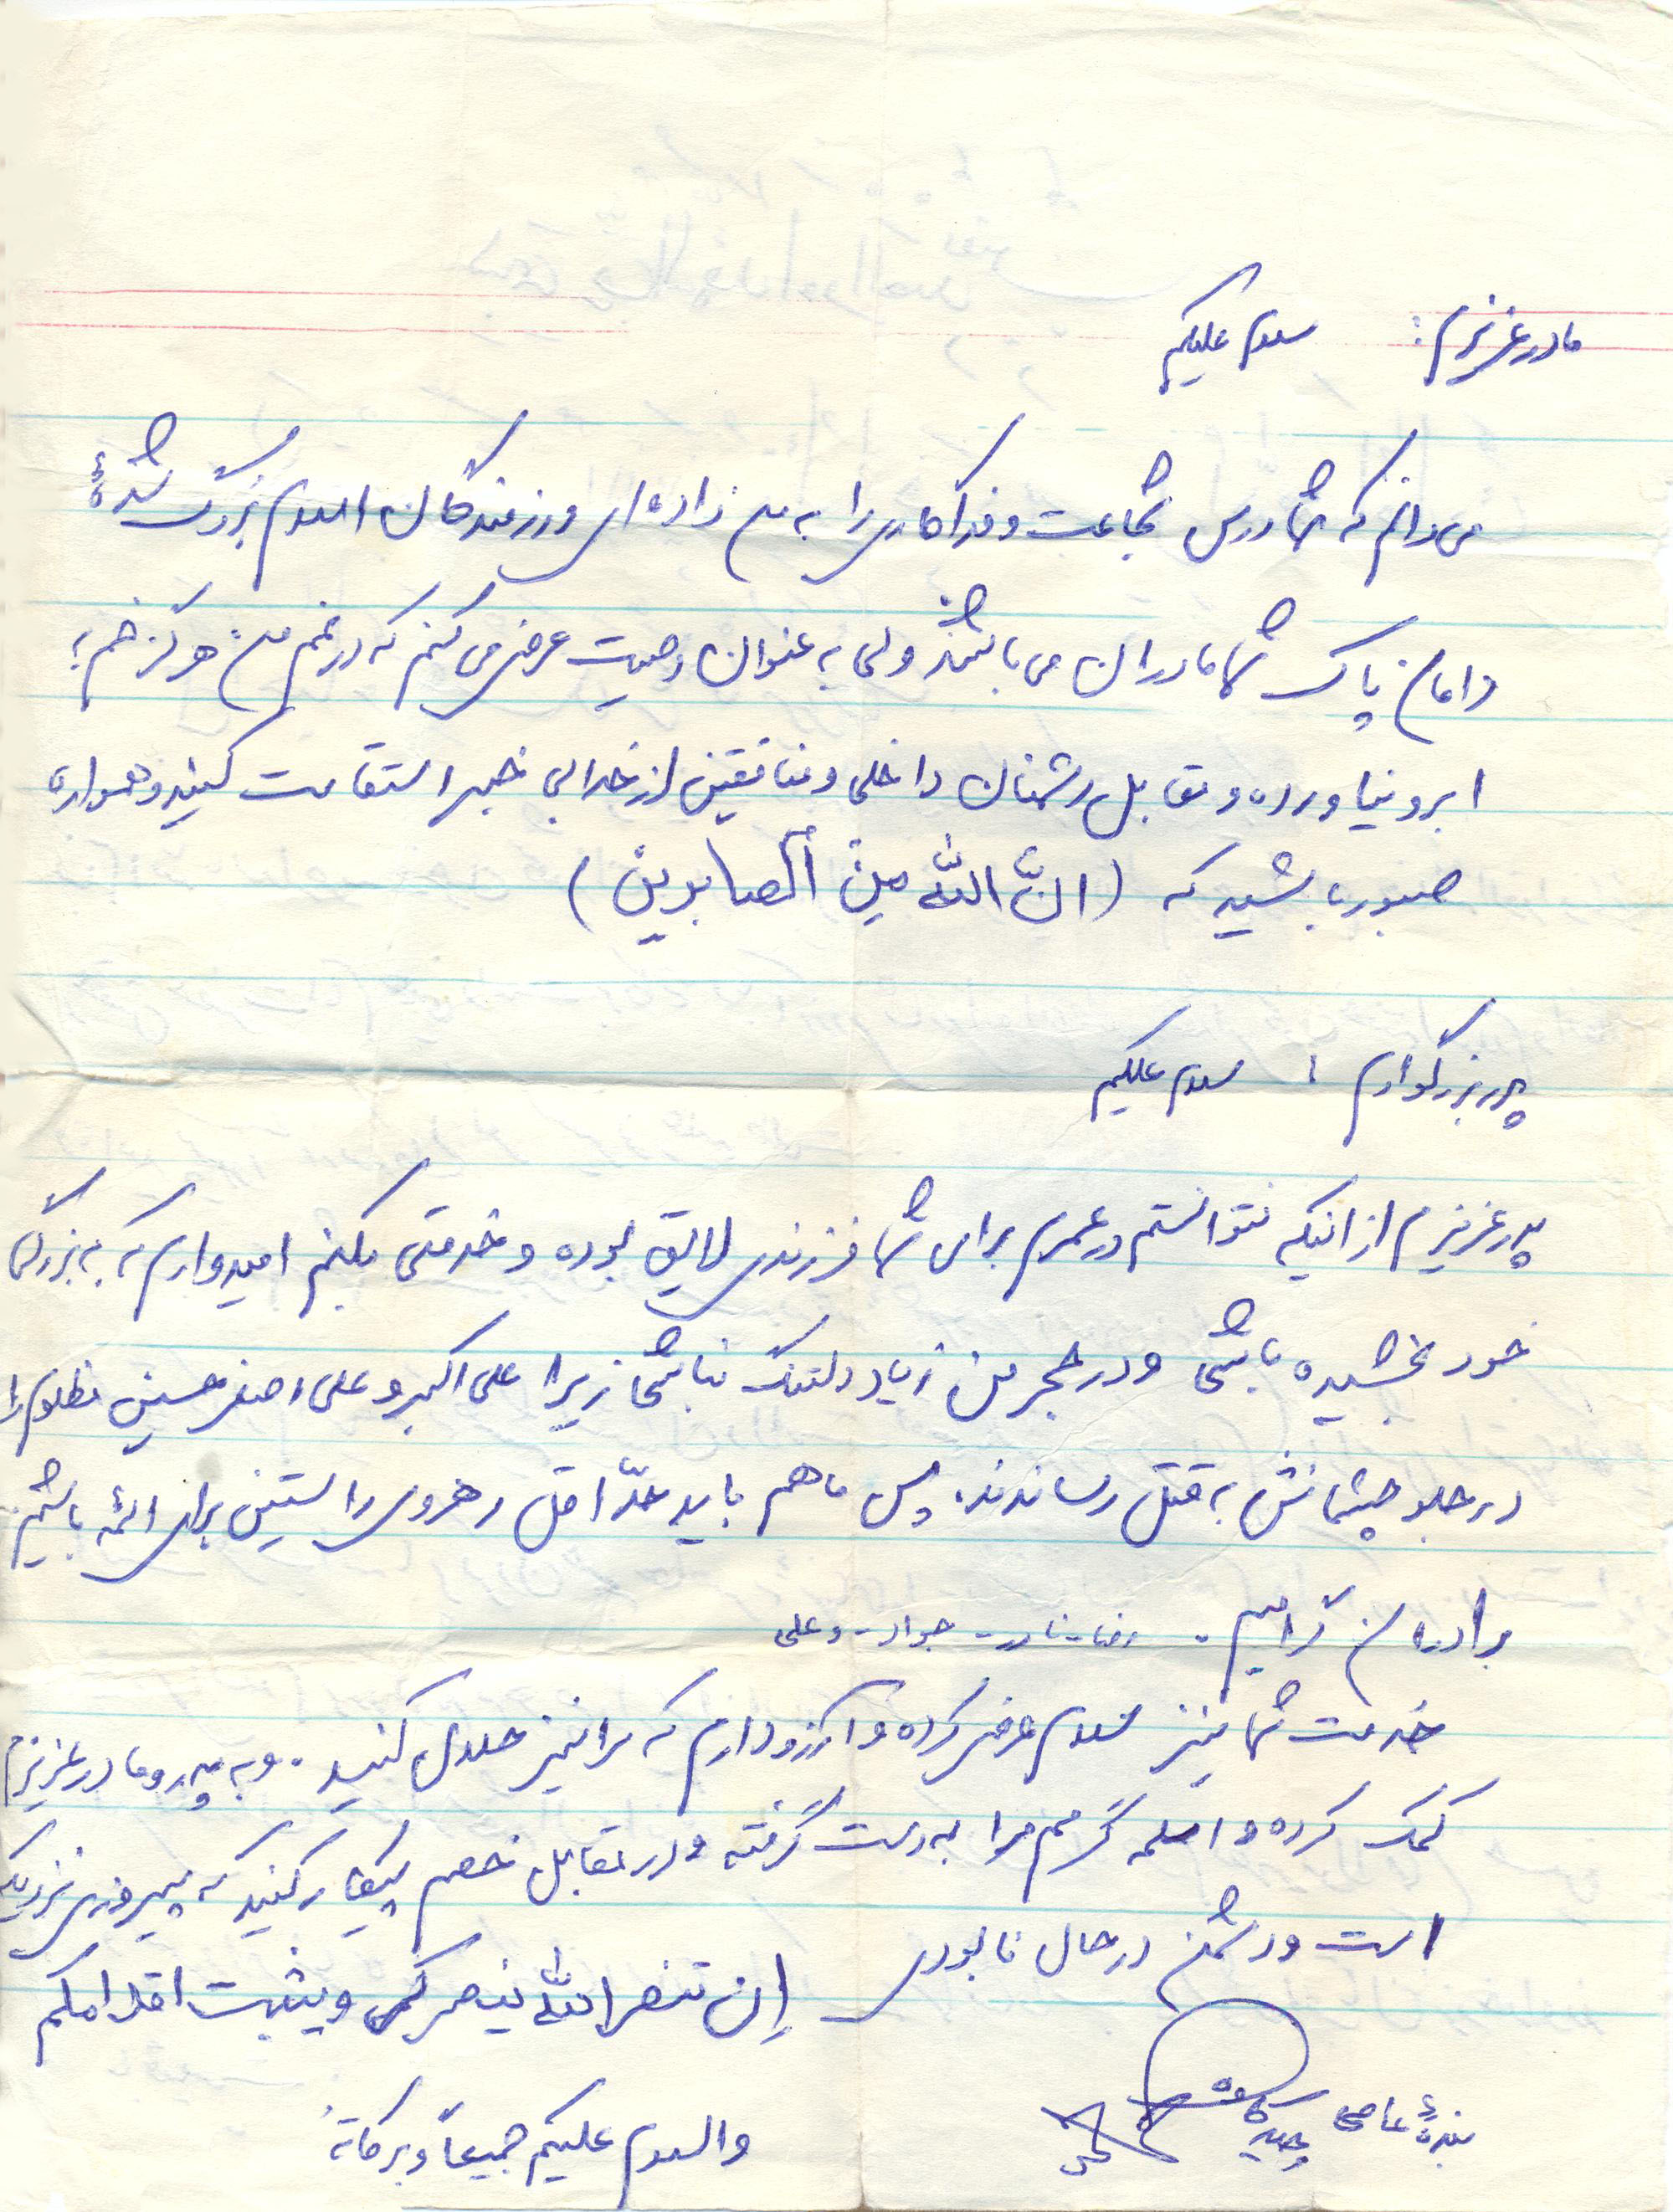 مادر عزیزم: سلام علیکم
می دانم که شما درس شجاعت و فداکاری را به من داده ای و رزمندگان اسلام بزرگ شدهٔ
دامان پاک شما مادران می باشند ولی به عنوان وصیت عرض می کنم که در غم من هرگز خم به
ابرو نیاورده و مقابل دشمنان داخلی و منافقین از خدا بی خبر استقامت کنید و همواره
صبور باشید که (انَّ اللّه مِنَ الصابرین)
پدر بزرگوارم ! سلام علیکم
پدر عزیزم از اینکه نتوانستم در عمرم برای شما فرزندی لایق بوده و خدمتی بکنم امیدوارم که به بزرگی
خود بخشیده باشی و در هجر من زیاد دلتنگ نباشی زیرا علی اکبر و علی اصغر حسین مظلوم را
در جلو چشمانش به قتل رساندند. پس ما هم باید حدّاقل رهروی راستین برای ائمه باشیم
برادران گرامیم - رضا - نادر - جواد - و علی
خدمت شما نیز سلام عرض کرده و آرزو دارم که مرا نیز حلال کنید . و به پدر و مادر عزیزم
کمک کرده و اسلحه گرمم را به دست گرفته و در مقابل خصم پیکار کنید که پیروزی نزدیک
است و دشمن در حال نابودی إن تنصرالله ینصرکم و یثبت اقدامکم
بندهٔ عاصی
والسلام علیکم جمیعاً و برکاته